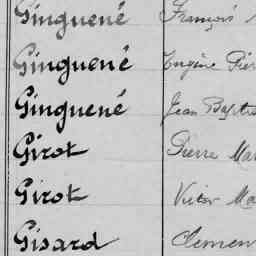 Ginguené François
Ginguené Eugène Pier
Ginguené Jean Baptis
Girot Pierre Mar
Girot Victor Ma
Gisard Clemen